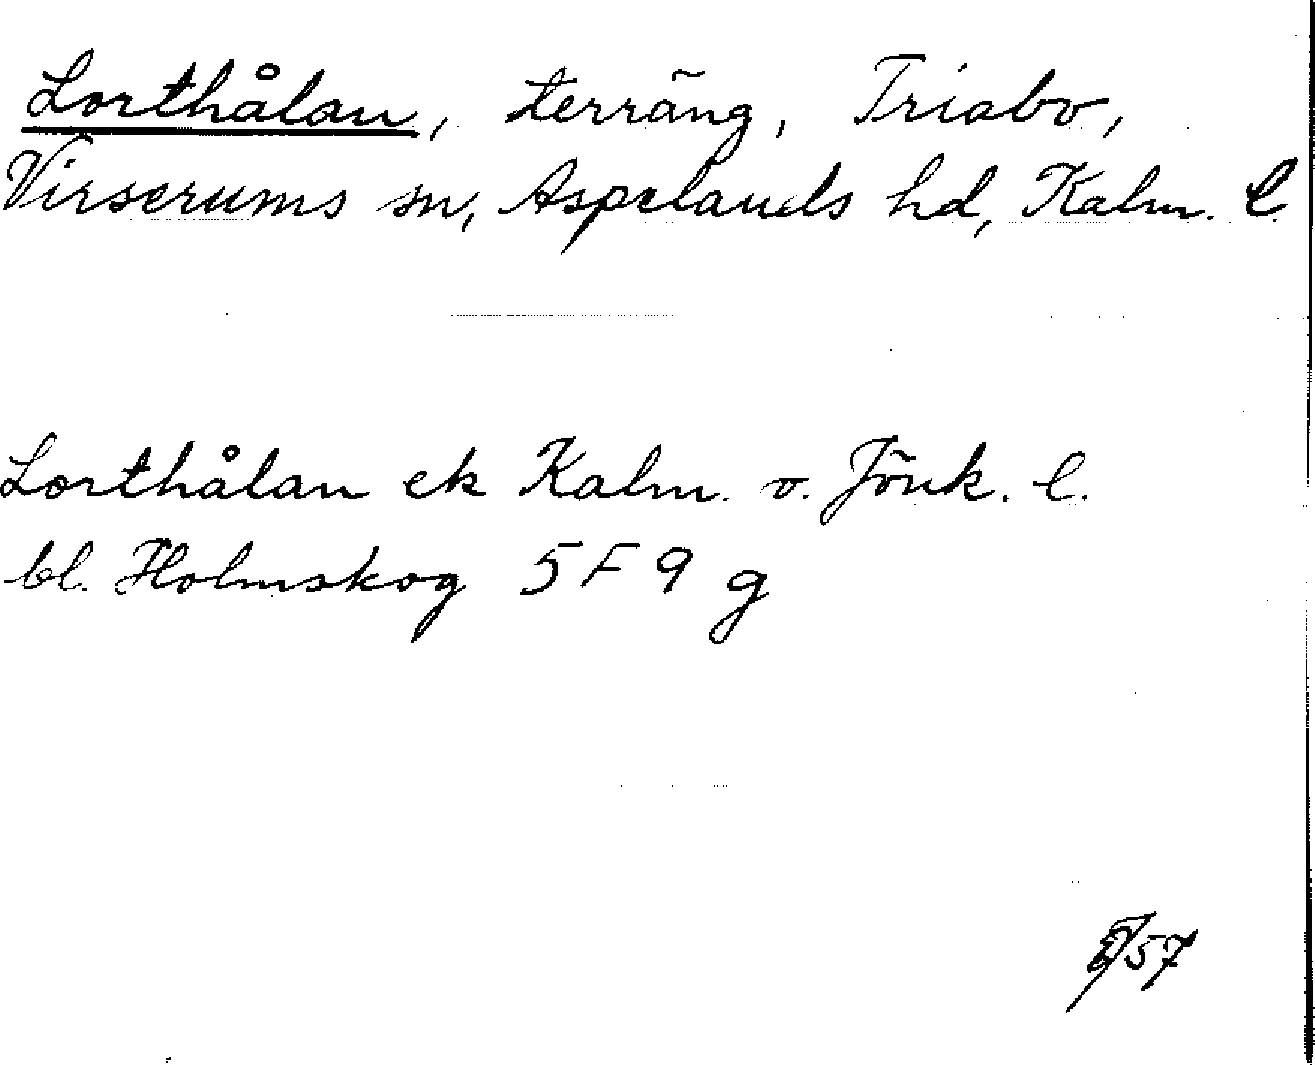 Lorthålan, terräng, Triabo,
Virserums sn, Aspelands hd, Kalm. l.
Lorthålan ek Kalm. o. Jönk. l.
bl. Holmskog 5 F 9 g